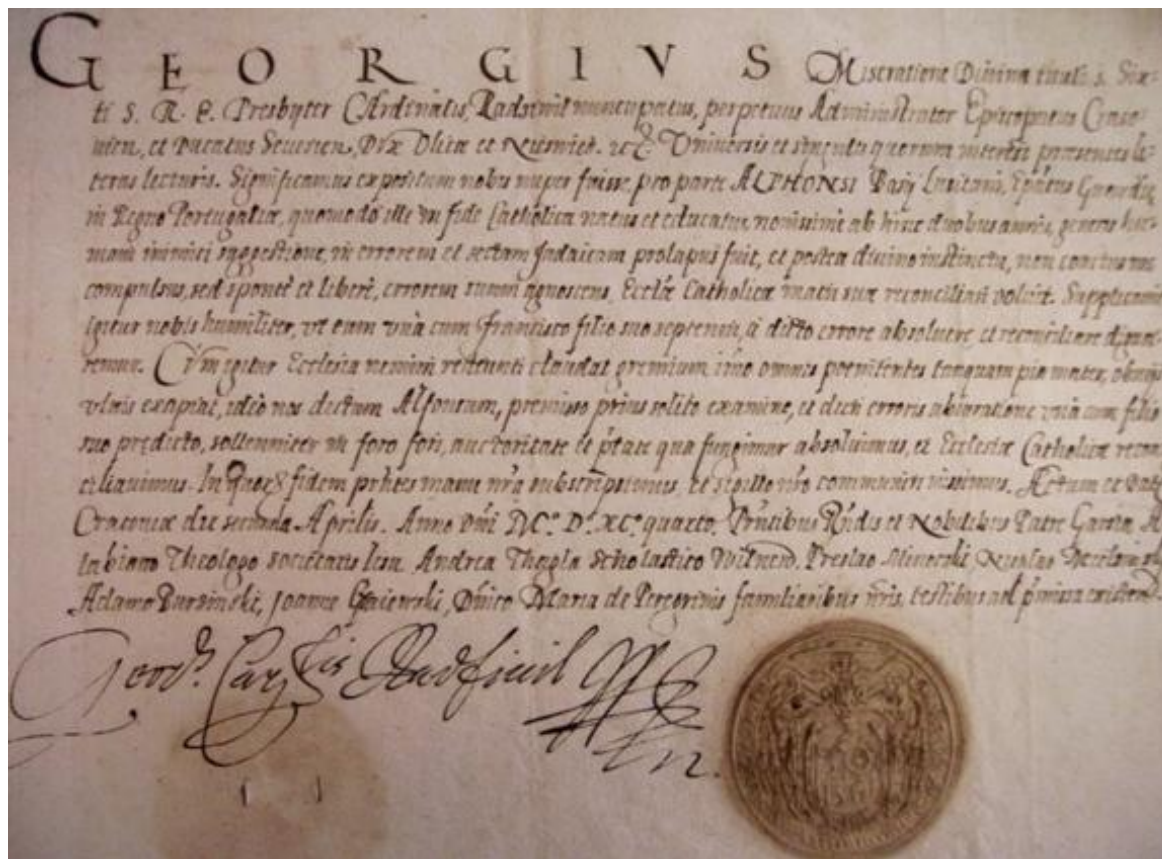 GEORGIVS Miseratione Divina tituli s. Six-
ti S. R. E. Presbyter Cardinalis, Radzivil nuncupatus, perpetuus Administrator Episcopatus Craco-
vien, et Ducatus Severien, Dux Olicæ et Universis et singulis quorum interest præsentes li-
teras lecturis. Significamus expositum nobis nuper fuisse, pro parte ALPHONSI Lusitani,
in Regno Portugaliæ, quomodo ille in fide Catholica natus et educatus, novissime ab hinc duobus annis, generis hu-
mani inimici suggestione, in errorem et sectam Judaicam prolapsus fuit, et postea divino instinctu, non coactus nec
compulsus, sed sponte et libere, errorem suum agnoscens, Ecclæ Catholicæ matri suæ reconciliari voluit. Supplicavit
igitur nobis humiliter, ut eum unà cum Francisco filio suo septenni, à dicto errore absolvere et reconciliare digna-
remur. Cum igitur Ecclesia nemini redeunti claudat gremium imo omnes poenitentes tanquam pia mater,
ulnis ideo nos dictum Alfonsum, premisso prius solito examine, et dicti erroris abiuratione unà cum filio
suo predicto, sollenniter in foro fori, auctoritate et qua fungimur absolvimus, et Ecclesiæ Catholicæ recon-
ciliavimus. In fidem manu nra subscripsimus et sigillo nro communiri iussimus. Actum et Dat
Cracoviæ die secunda Aprilis. Anno Dni Mº. Dº. XCº. quarto. et Nobilibus Patre Garcia A-
labiano Theologo Societatis Iesu. Andrea Scholastico
Adamo Joanne Maria de familiaribus nris, testibus ad
Card Radziwil